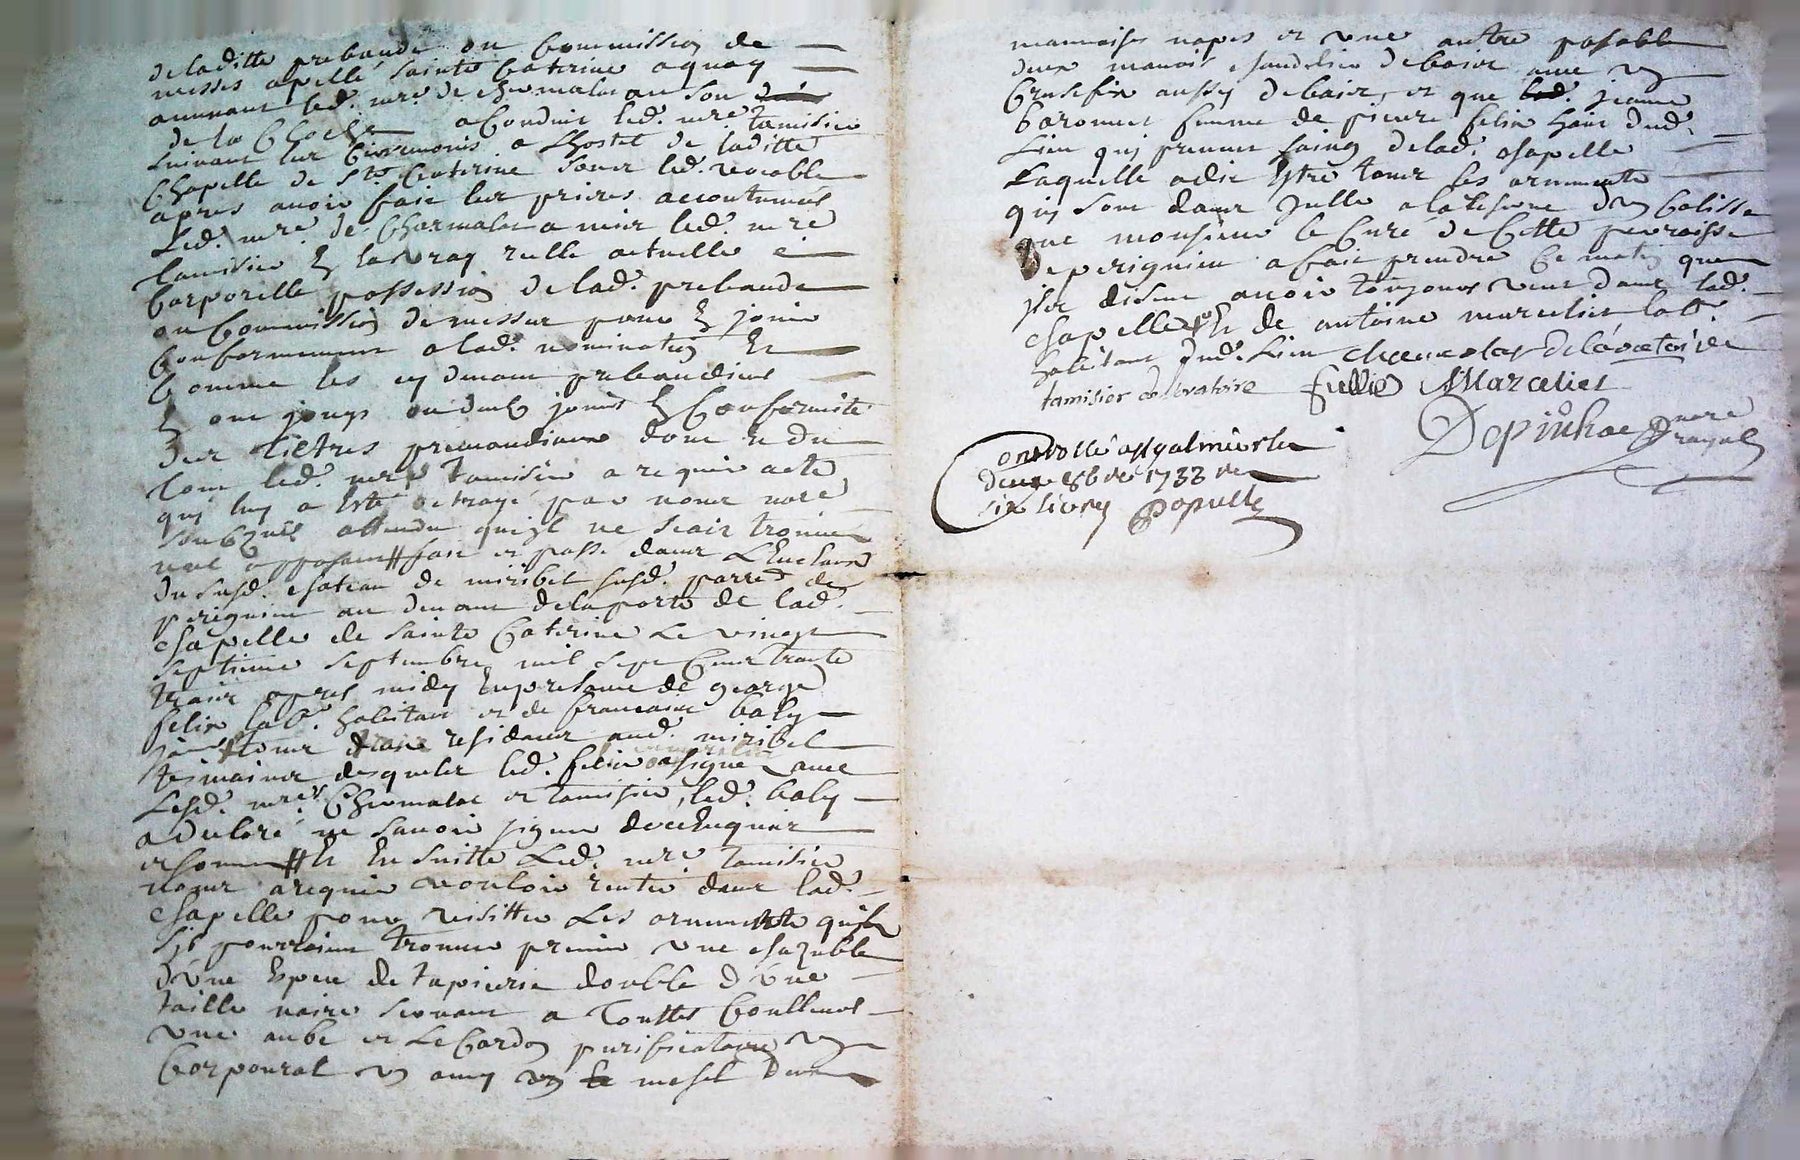 deladitte prebande ou Commission de
messes apellé sainte Caterine aquoy
annuant led. mre. de charmalat au son
de la Cloche a Conduit led. mre tamisier
suivant les Ceremonies a Lhostel de laditte
Chapelle de Ste. Caterine dont led. venerable
apres avoir fait les prieres accoutumées
Led. mre. de Charmalat a mis led. mre
Tamisier En la vray réelle actuelle e
Corporelle possession de lad. prebande
ou Commission de messes pour En jouir
Conformement a lad. nomination Et
Comme les cy devant prebandiers
En ont jouys ou deub jouir En Conformité
Des Tiltres primordiaux dont et du
tout led. mre Tamisier a requis acte
quy luy a Esté octroyé par nous nore
soubsné attendu quil ne scait trouvé
nul opposant # fait et passé dans L'Enclave
Du susd. chateau de miribel susd. parre de
perignieu au devant delaporte de lad.
chapelle de sainte Caterine Le vingt
septieme septembre mil sept Cent trante
trois apres midy En presence de george
felix labr. habitant et de francois baly
resident aud. miribel
tesmoins desquels led. felix a signé avec
Lesd. mres Charmalat et Tamisier, led. baly
a declaré ne savoir signer de ce Enquis
et sommé # Et En suitte Led. mre Tamisier
nous a requis vouloir rentré dans lad.
chapelle pour visitter Les ornements quils
sy pourroient trouver premier une chazuble
d'une Espece de tapisserie double d'une
taille noire servant a Touttes Coulleurs
une aube et Le Cordon purificatoire un
Corporal un amy un mesel deux
mauvaises napes et une autre pasable
deux mauvais chandelier debois avec un
Crusefix aussy debois, et que jeanne
baronnet femme de pierre felix hoste dud.
Lieu quy prennet soing delad. chapelle
Laquelle a dit Estre tous les ornements
quy sont dans Jcelle a la reserve d'un Calisse
que monsieur le Curé de Cette parroisse
De perignieu a fait prendre Ce matin que
disent avoir toujours veus dans lad.
chapelle Et de antoine marcelier labr.
habitant dud. Lieu charmolat delavatoire
tamisier observatoire fellix AMarcelier
Depinhac nore Royal
Controllé a St galmier le
deux 8bre 1733 re
six livres Populle